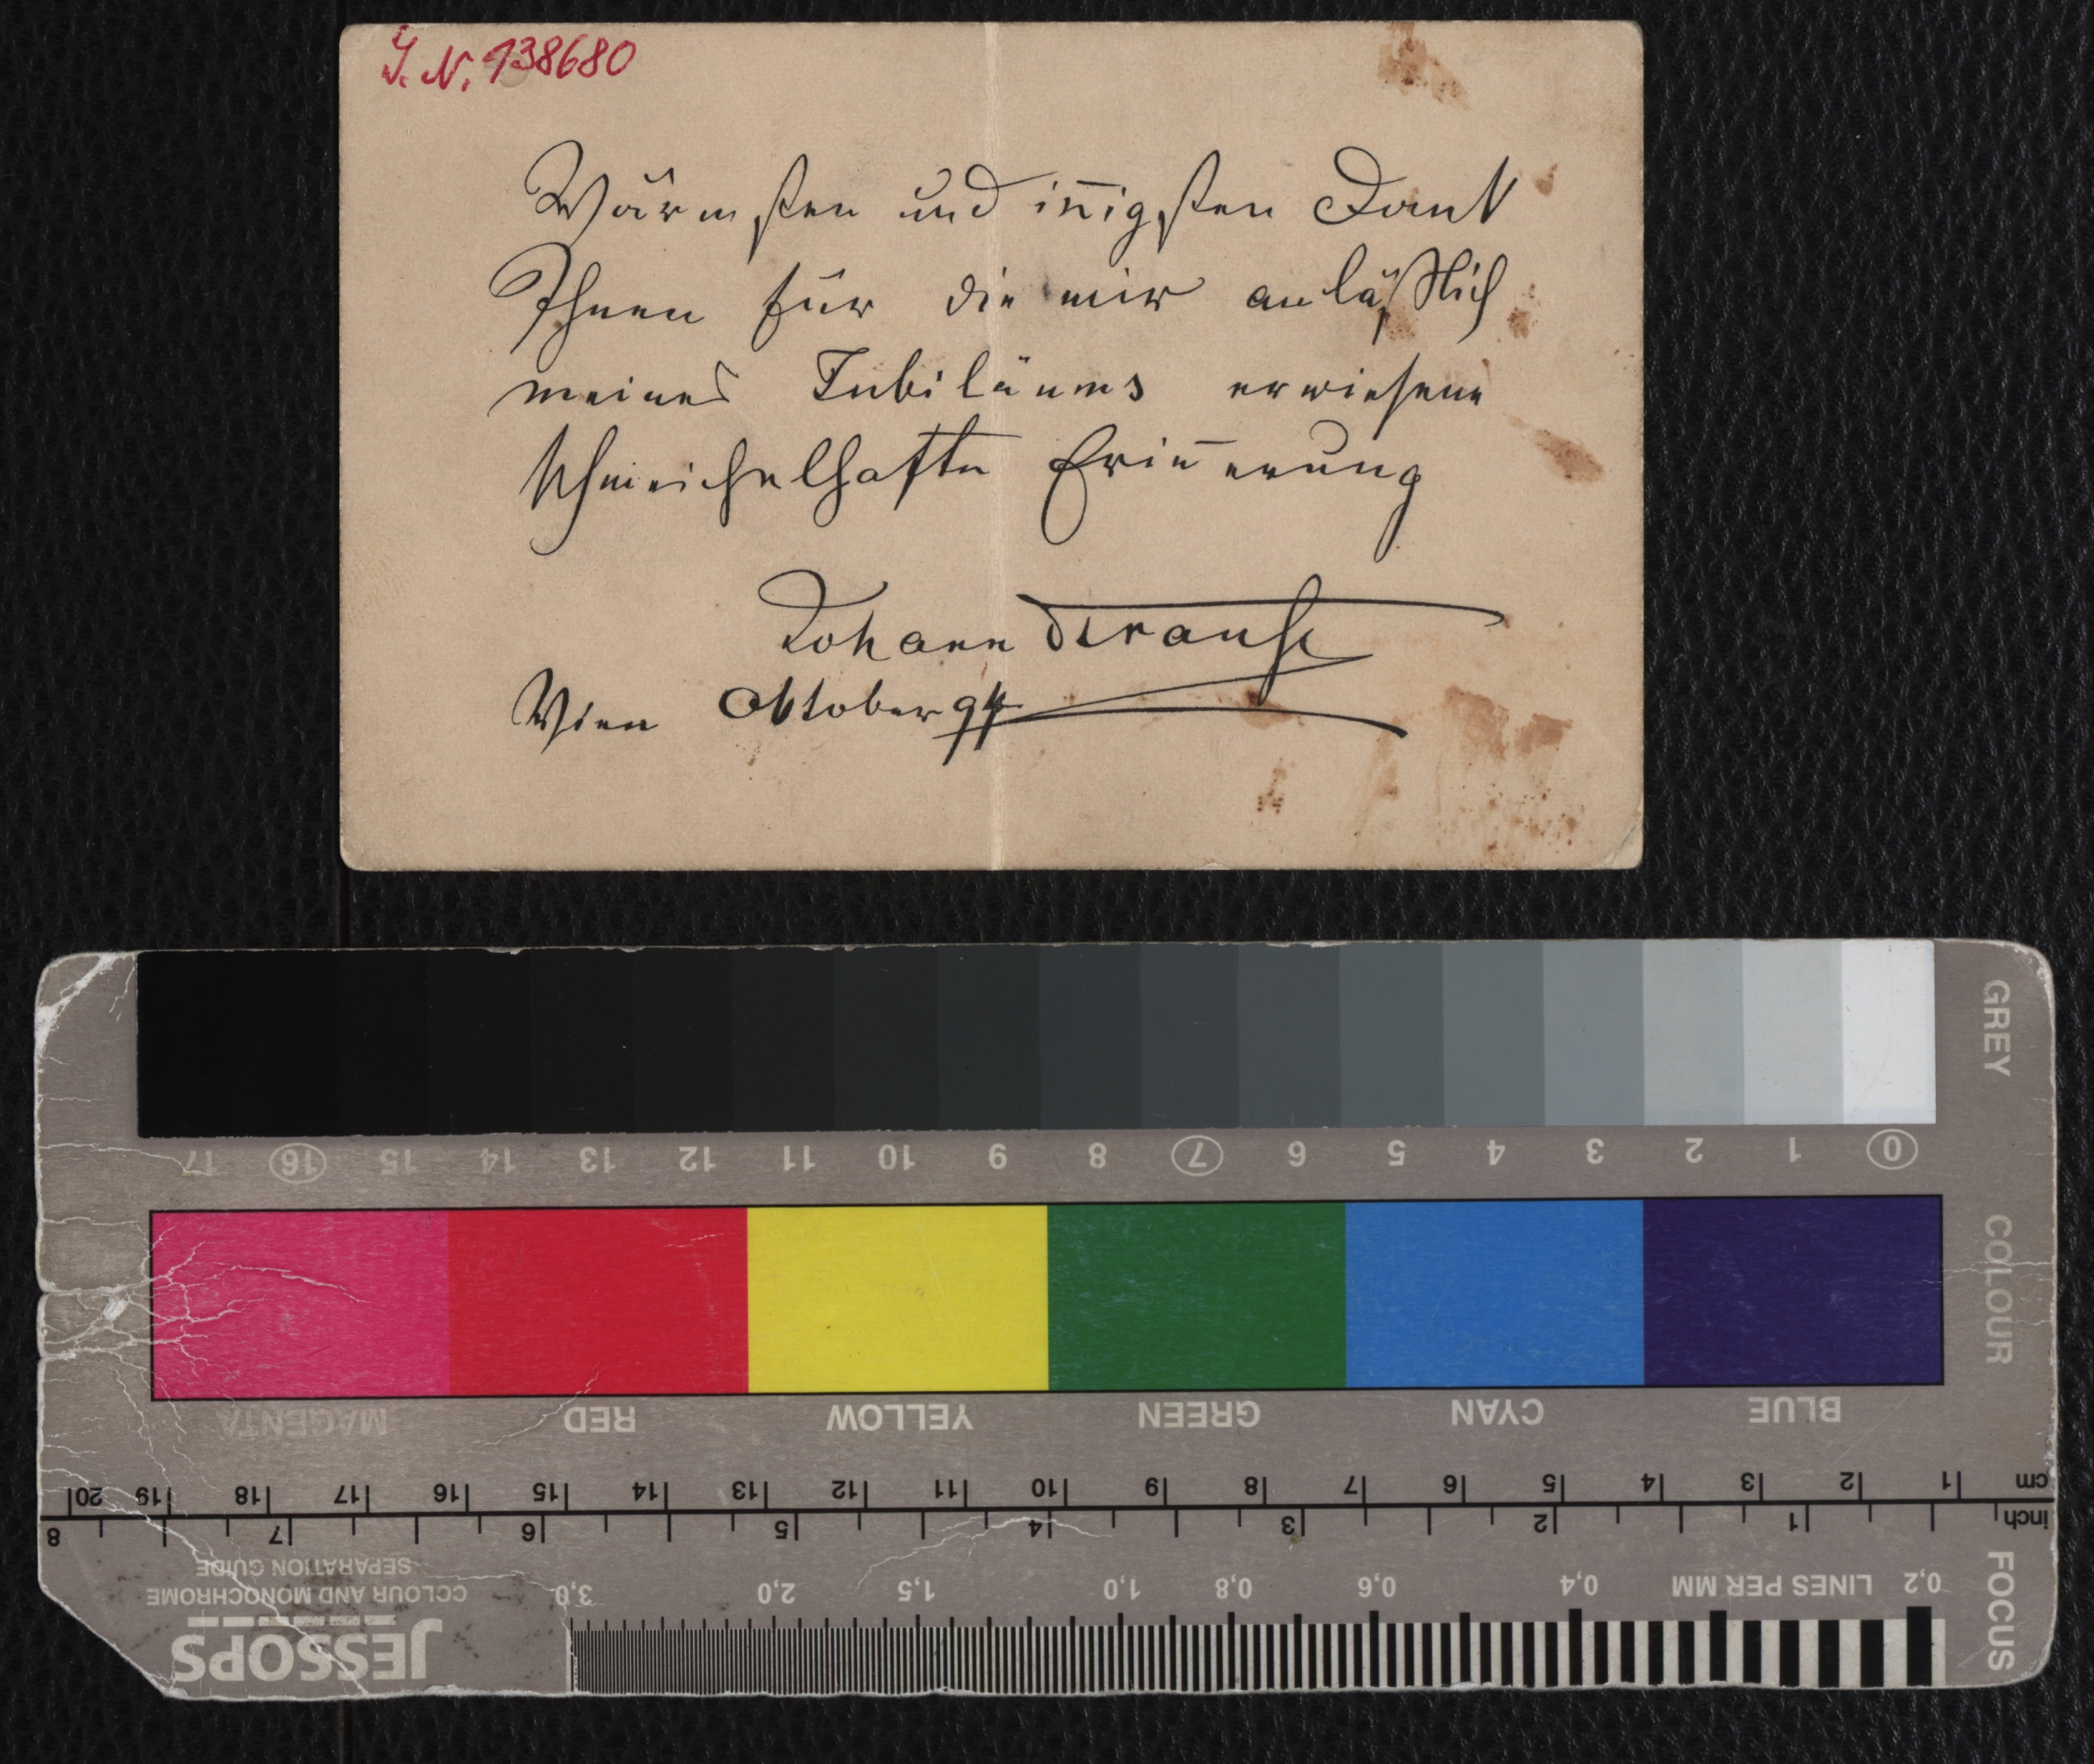 I. N. 138680
Wärmsten und in̅igsten Dank
Ihnen für die mir anläßlich
meines Jubiläums erwiesene
schmeichelhafte Erin̅erung
Johann Strauss
Wien Oktober 94
GREY
17 16 15 14 13 12 11 10 9 8 7 6 5 4 3 2 1 0
COLOUR
MAGENTA RED YELLOW GREEN CYAN BLUE
20 19 18 17 16 15 14 13 12 11 10 9 8 7 6 5 4 3 2 1 cm
8 7 6 5 4 3 2 1 inch
JESSOPS
COLOUR AND MONOCHROME
SEPARATION GUIDE
3,0 2,0 1,5 1,0 0,8 0,6 0,4 LINES PER MM 0,2
FOCUS